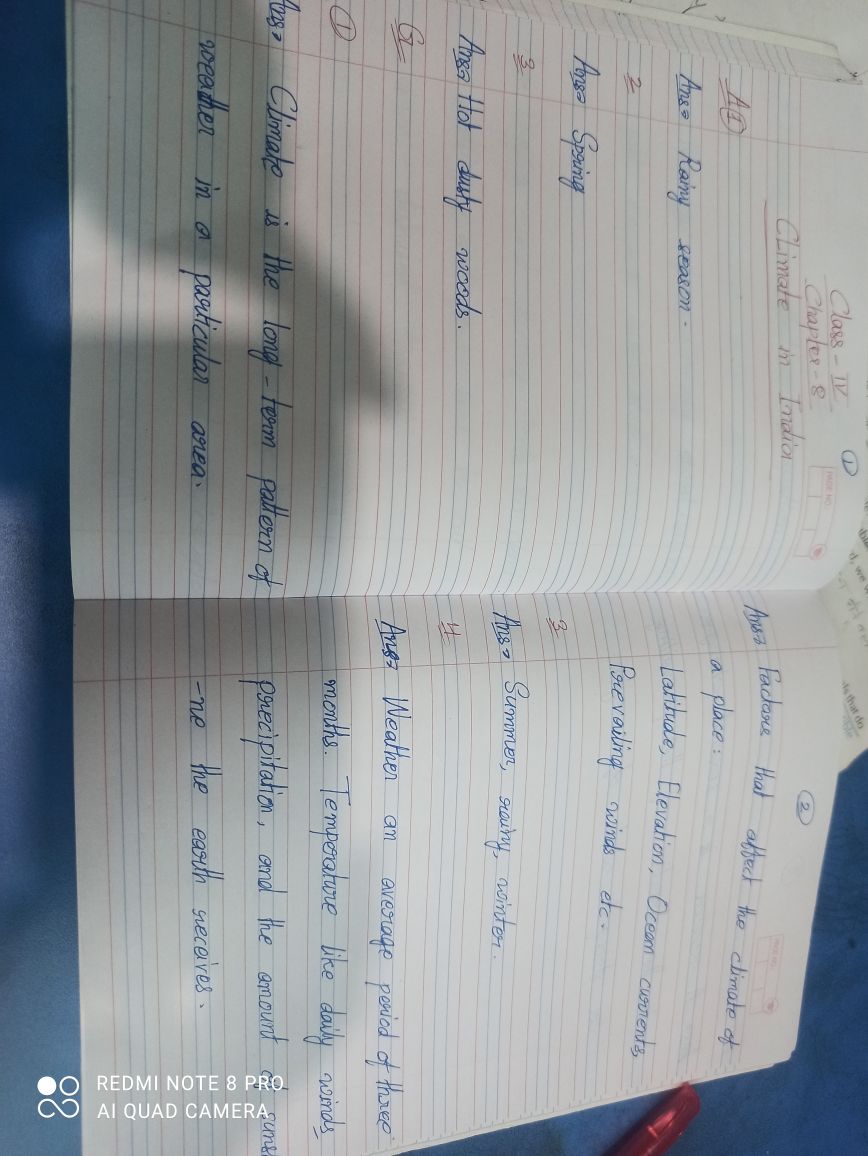 ①
Class - IV
Chapter - 8
Climate in India
PAGE NO.
A ①
Ans⇒ Rainy season.
2
Ans⇒ Spring
3
Ans⇒ Hot dusty woods.
Q
①
Ans⇒ Climate is the long-term pattern of
weather in a particular area.
②
PAGE NO.
Ans⇒ Factors that affect the climate of
a place:
Latitude, Elevation, Ocean currents,
Prevailing winds etc.
3
Ans⇒ Summer, rainy, winter.
4
Ans⇒ Weather an average period of three
months. Temperature like daily winds,
precipitation, and the amount of suns
-ne the earth receives.
REDMI NOTE 8 PRO
AI QUAD CAMERA